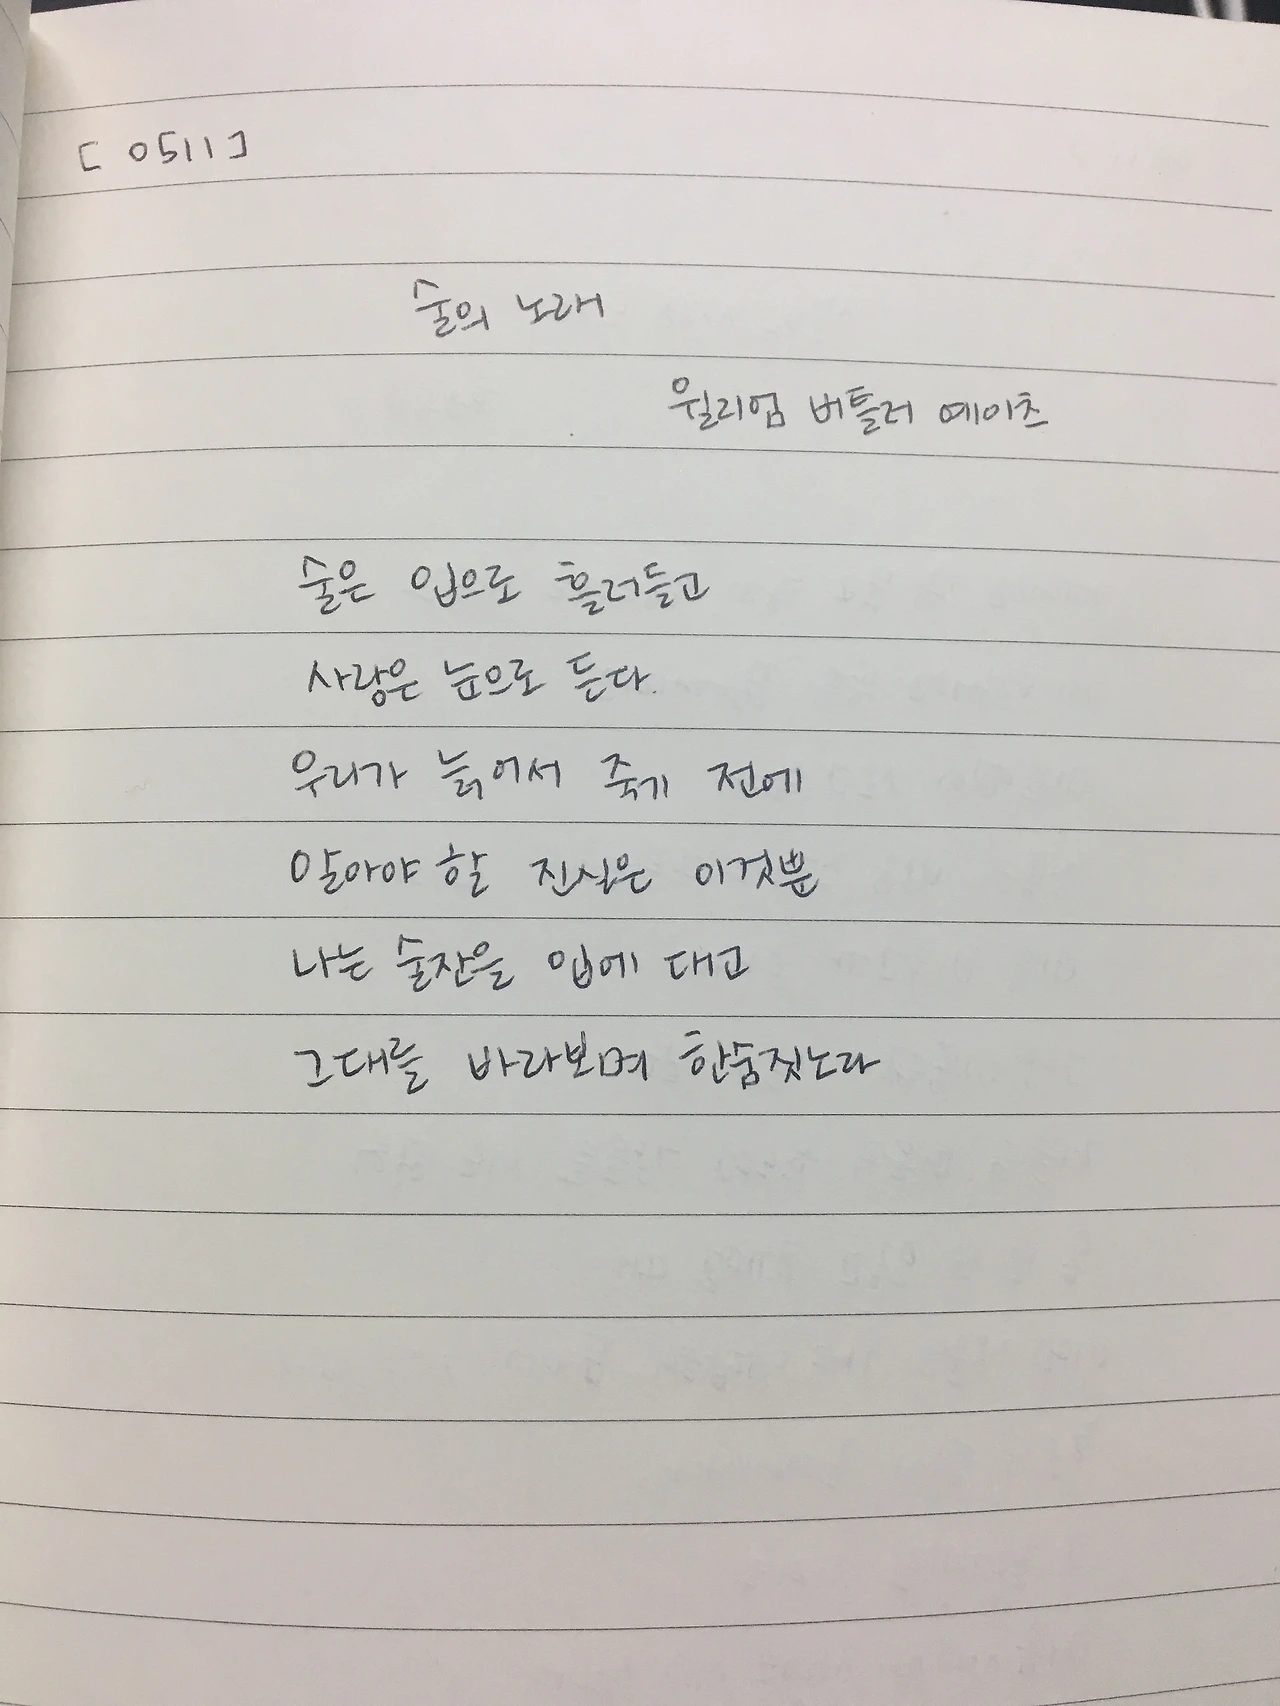 [ 0511 ]
술의 노래
윌리엄 버틀러 예이츠
술은 입으로 흘러들고
사랑은 눈으로 든다.
우리가 늙어서 죽기 전에
알아야 할 진실은 이것뿐
나는 술잔을 입에 대고
그대를 바라보며 한숨짓노라